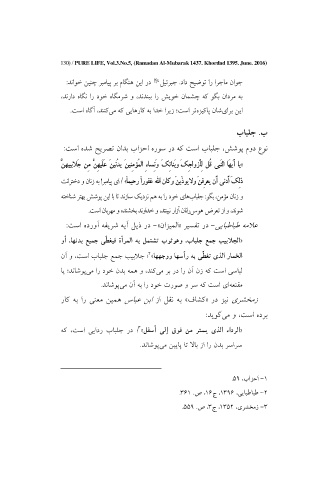 130) / PURE LIFE, Vol.3.No.5, (Ramadan Al-Mubarak 1437. Khordad 1395. June. 2016)
جوان ماجرا را توضیح داد. جبرئیل در این هنگام بر پیامبر چنین خواند:
به مردان بگو که چشمان خویش را ببندند، و شرمگاه خود را نگاه دارند،
این برای‌شان پاکیزه‌تر است؛ زیرا خدا به کارهایی که می‌کنند، آگاه است.
ب. جلباب
نوع دوم پوشش، جلباب است که در سوره احزاب بدان تصریح شده است:
«یا أَیهَا النَّبِی قُل لِّأَزْوَاجِک وَبَنَاتِک وَنِساءِ المُؤْمِنِینَ یدْنِینَ عَلَیهِنَّ مِن جَلَابِیبِهِنَّ
ذَلِک أَدْنَی أَن یعْرَفْنَ وَلا یؤْذَینَ وَکانَ اللَّه غَفُوراً رَحِیماً؛ ای پیامبر! به زنان و دخترانت
و زنان مؤمن، بگو: جلباب‌های خود را به هم نزدیک سازند تا با این پوشش بهتر شناخته
شوند، و از تعرض هوس‌رانان آزار نبینند، و خداوند بخشنده و مهربان است.
علامه طباطبایی- در تفسیر «المیزان»- در ذیل آیه شریفه آورده است:
«الجلابیب جمع جلباب، وهو ثوب تشتمل به المرأة فیغطّی جمیع بدنها، أو
الخمار الذی تغطّی به رأسها ووجهها»۲؛ جلابیب جمع جلباب است، و آن
لباسی است که زن آن را در بر می‌کند، و همه بدن خود را می‌پوشاند؛ یا
مقنعه‌ای است که سر و صورت خود را به آن می‌پوشاند.
زمخشری نیز در «کشاف» به نقل از ابن عباس همین معنی را به کار
برده است، و می‌گوید:
«الرداء الذی یستر من فوق إلی أسفل»۳؛ در جلباب ردایی است، که
سراسر بدن را از بالا تا پایین می‌پوشاند.
۱- احزاب، ۵۹.
۲- طباطبایی، ۱۳۹۶، ج۱۶، ص. ۳۶۱
۳- زمخشری، ۱۳۵۲، ج۳، ص. ۵۵۹.